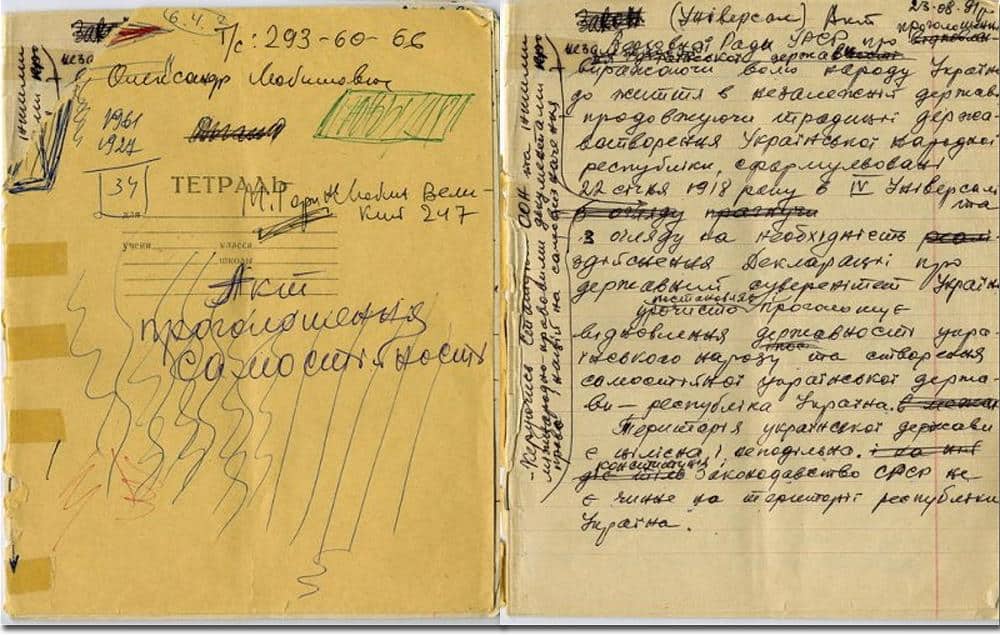 6.4.2
Т/с: 293-60-66
Олександр
1961
1927
34
ТЕТРАДЬ
для
учени
класса
школы
247
Акт
проголошення
самостійності
23-08.91р.
Закон (Універсал) Акт
проголошення
Верховної Ради УРСР про
української держав
виражаючи волю народу Україн
до життя в незалежній держав
продовжуючи традиції держа-
вотворення Української Народної
республіки, сформульовані
22 січня 1918 року в IV Універсалі
та
з огляду на необхідність
здійснення Декларації про
державний суверенітет Україн
урочисто проголошує
відновлення державності укра-
їнського народу та створення
самостійної української держа-
ви — республіка Україна.
Територія української держави
є цілісна і неподільна.
конституція і
законодавство СРСР не
є чинне на території республіки
Україна.
- керуючись Статутом ООН та іншими
міжнародно-правовими документами про
право націй на самовизначення